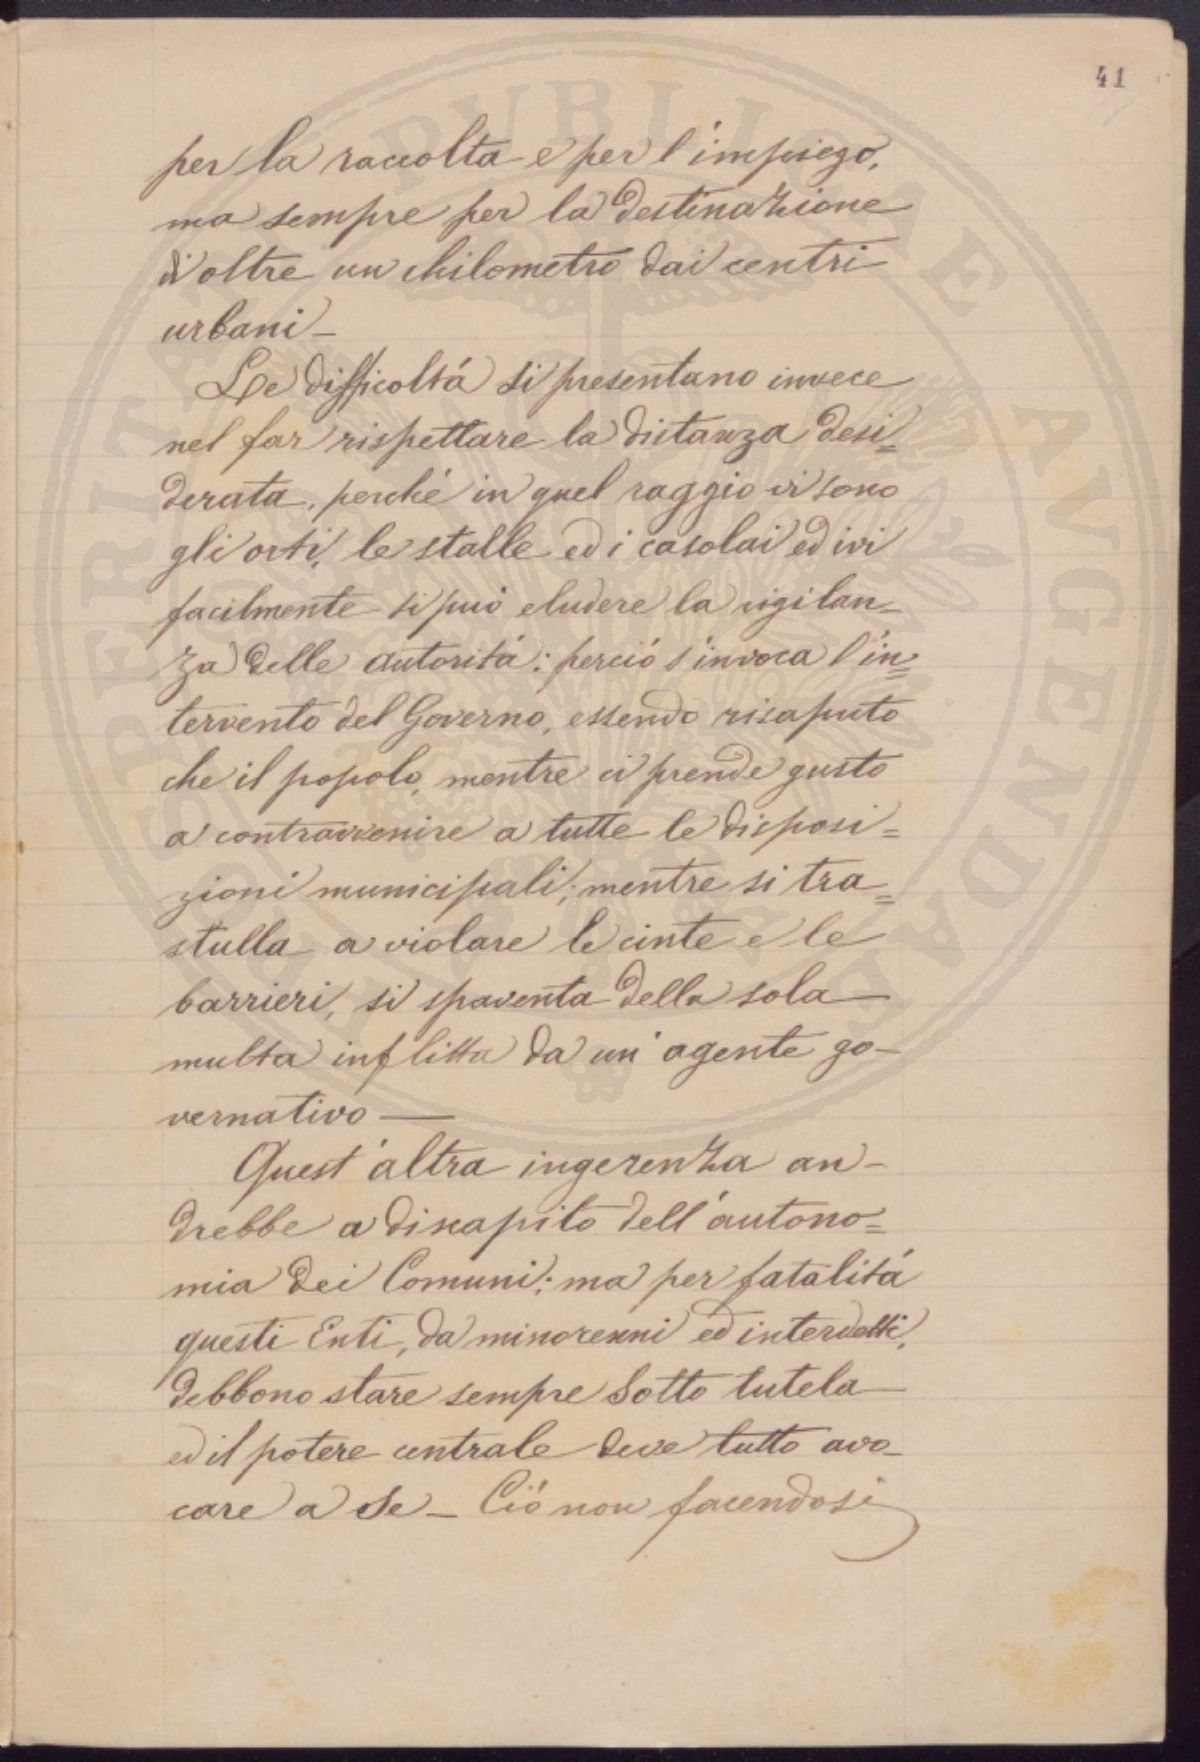 41
per la raccolta e per l'impiego,
ma sempre per la destinazione
di oltre un chilometro dai centri
urbani —
Le difficoltá si presentano invece
nel far rispettare la distanza desi=
derata, perché in quel raggio vi sono
gli orti, le stalle ed i casolai ed ivi
facilmente si puó eludere la vigilan=
za delle autoritá: perció s'invoca l'in=
tervento del Governo, essendo risaputo
che il popolo, mentre ci prende gusto
a contravvenire a tutte le disposi=
zioni municipali; mentre si tra=
stulla a violare le cinte e le
barrieri, si spaventa della sola
multa inflitta da un' agente go-
vernativo —
Quest'altra ingerenza an-
drebbe a discapito dell'autono=
mia dei Comuni; ma per fatalitá
questi Enti, da minorenni ed interdetti,
debbono stare sempre sotto tutela
ed il potere centrale deve tutto avo-
care a se — Ció non facendosi
PROSPERITATI PVBLICAE AVGENDAE